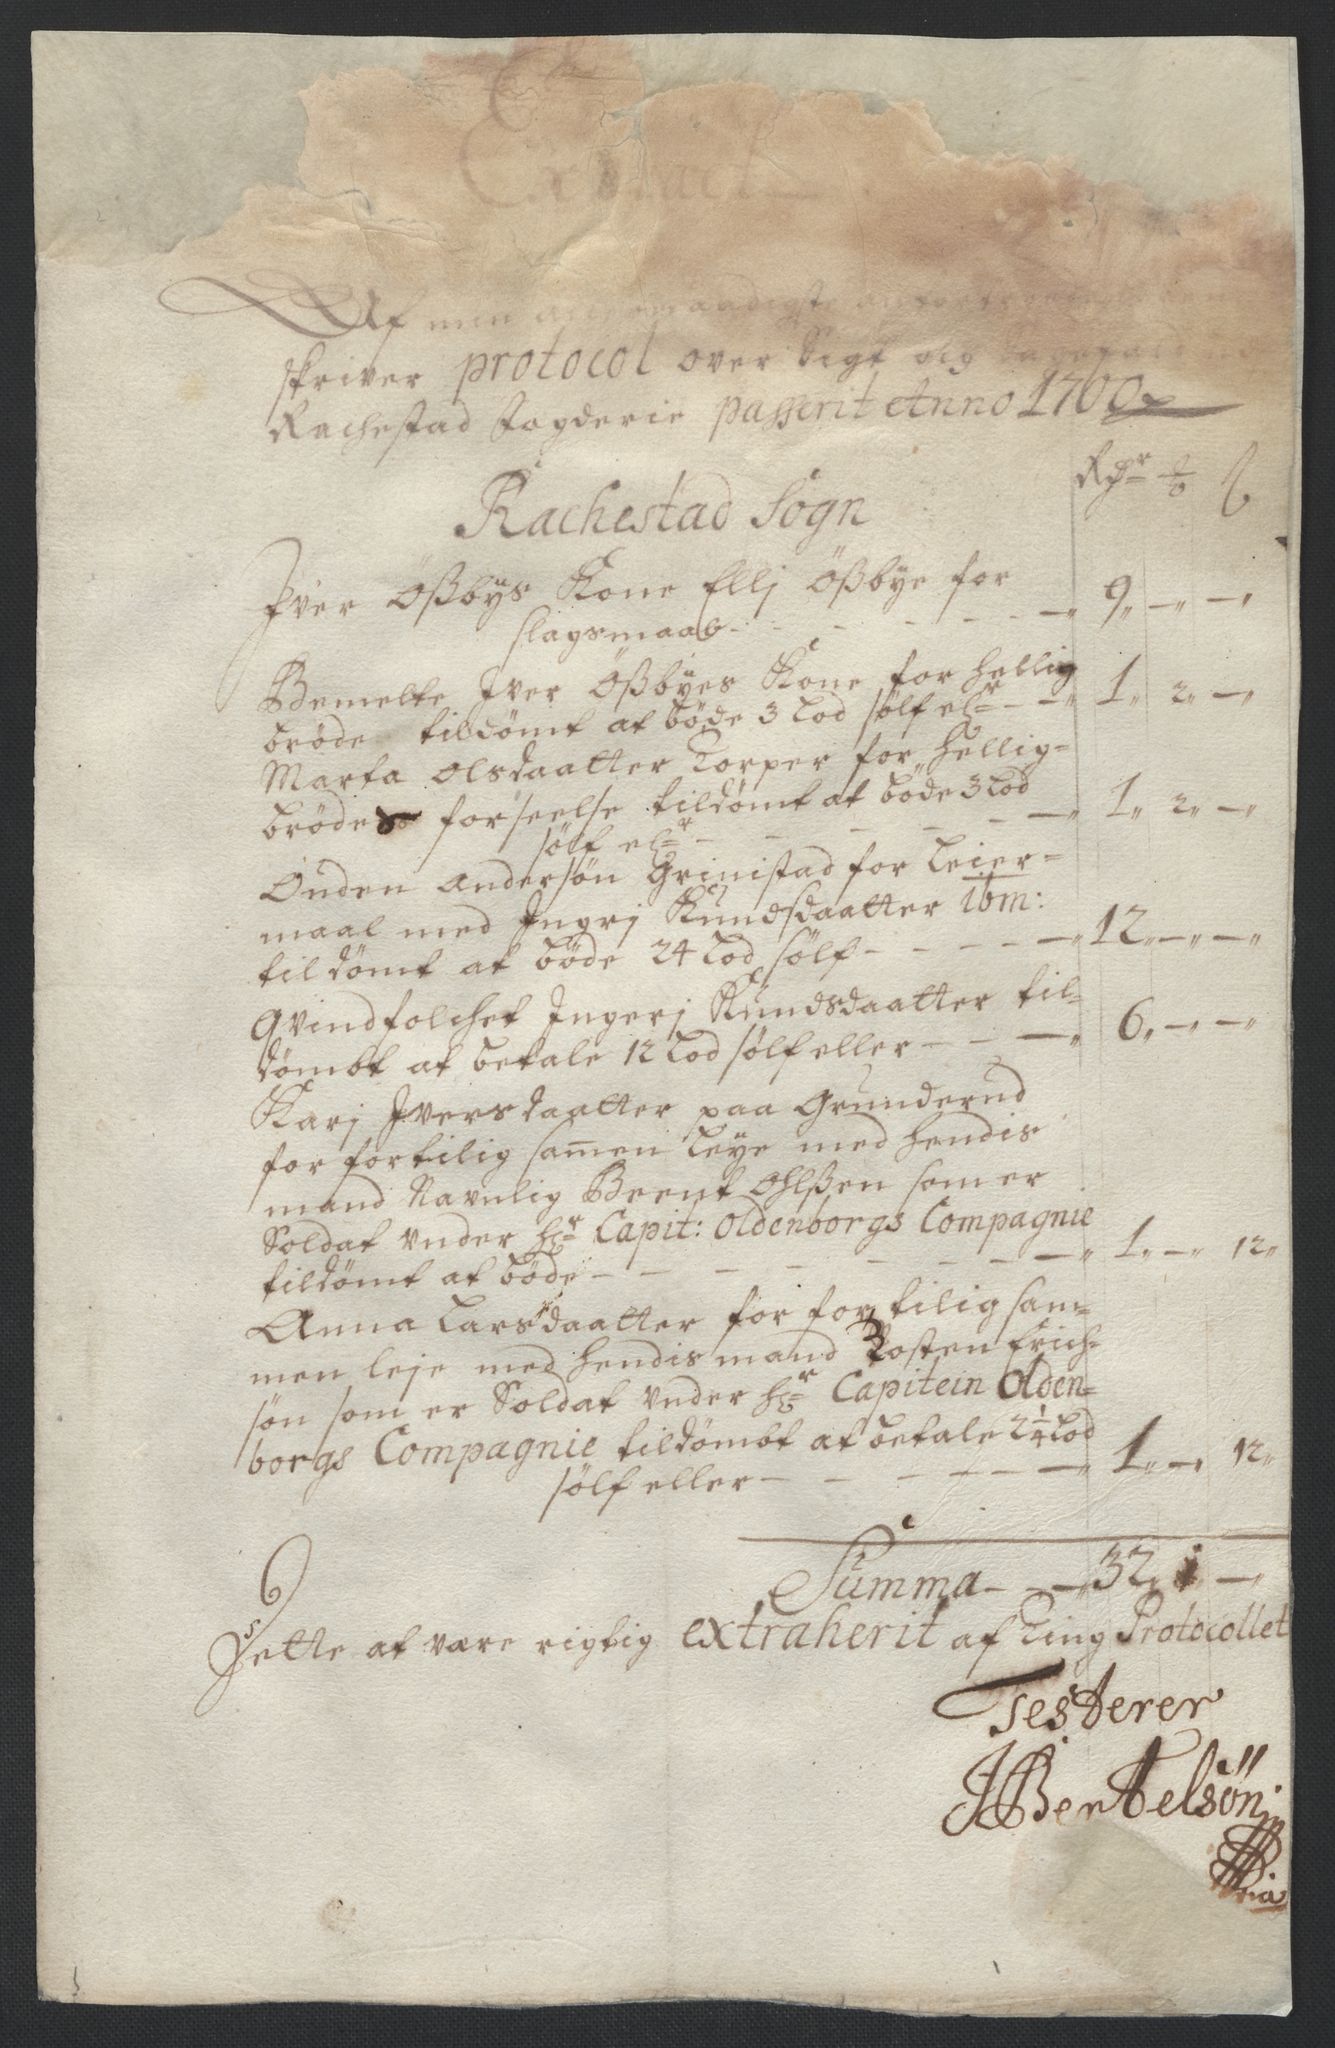 Extract
Af min allernaadigste
skriver protocol over Sigt og
Rachestad fogderie passerit Anno 1700
Rdr ß
Rachestad Sogn
Iver Ößbys Kone Ellj Ößbye for
slagsmaal - - - - - - 9,, —,, —,,
Bemelte Iver Ößbyes Kone for hellig
brøde tildömt at böde 3 Lod sölf elr - - 1,, 2,, —,,
Marta Olsdaatter Torper for hellig-
brödes forseelse tildömt at böde 3 Lod
sölf elr - - - - - - 1,, 2,, —,,
Önden Andersøn Grinistad for Leier-
maal med Ingrj Knudsdaatter ibm:
tildömt at böde 24 Lod sölf - - - - - 12,, —,, —,,
Qvindfolchet Ingerj Knudsdaatter til-
dömbt at betale 12 Lod sölf eller - - - 6,, —,, —,,
Karj Iversdaatter paa Grunderud
for fortilig samen leye med hendis
mand Navnlig Beent Ohlßen som er
Soldat vnder hr Capit: Oldenborgs Compagnie
tildömt at böde - - - - - - - 1,, —,, 12,,
Anna Larsdaatter for for tilig sam-
men leje med hendis mand Tosten Erich-
søn som er Soldat vnder hr Capitein Olden-
borgs Compagnie tildömbt at betale 2 1/4 Lod
sölf eller - - - - - - 1,, —,, 12,,
Summa - - - 32,, 1 —,,
Dette at være rigtig extraherit af Ting Protocollet
Testerer
JBertelsön